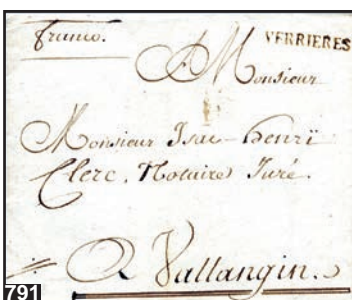 franco.
VERRIERES
Monsieur
Monsieur Isac-Henrÿ
Clerc, Notaire Juré.
A Vallangin.
791